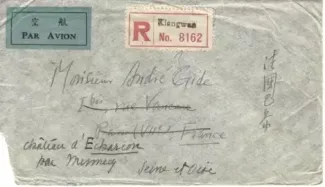 空 航
PAR AVION
R
Kiangwan
No. 8162
法國巴黎
Monsieur André Gide
1 bis rue Vaneau
Paris (VIIe) France
château d'Echarcon
par Mennecy
Seine et Oise